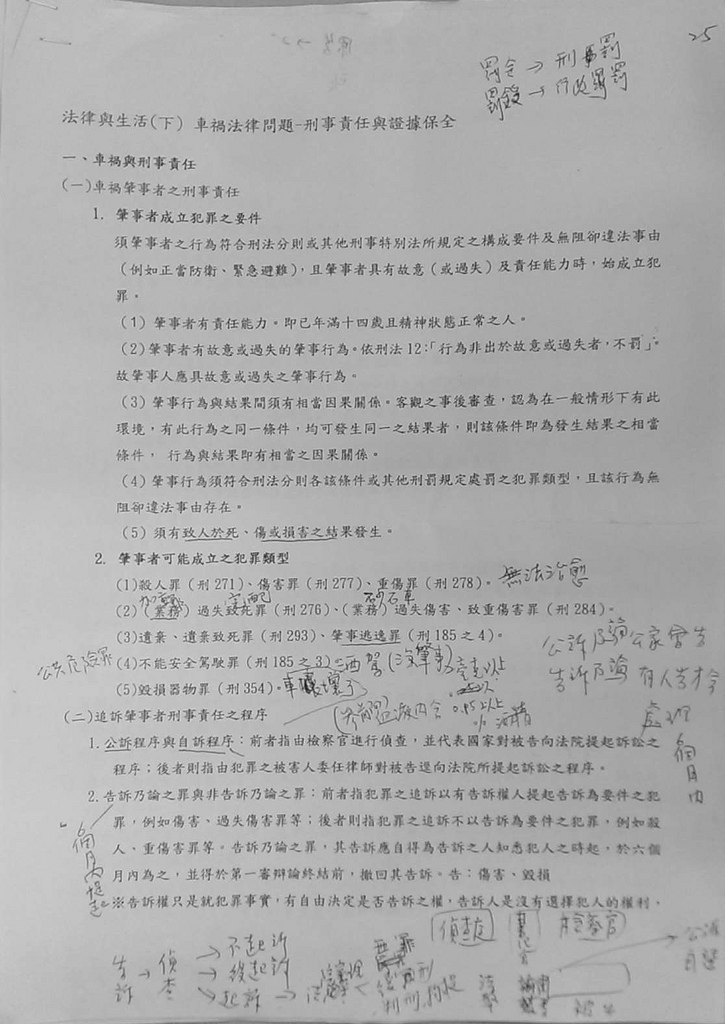 25
罰金→刑事罰
罰鍰→行政罰
法律與生活(下) 車禍法律問題-刑事責任與證據保全
一、車禍與刑事責任
(一)車禍肇事者之刑事責任
1. 肇事者成立犯罪之要件
須肇事者之行為符合刑法分則或其他刑事特別法所規定之構成要件及無阻卻違法事由
(例如正當防衛、緊急避難),且肇事者具有故意(或過失)及責任能力時,始成立犯
罪。
(1)肇事者有責任能力。即已年滿十四歲且精神狀態正常之人。
(2)肇事者有故意或過失的肇事行為。依刑法12:「行為非出於故意或過失者,不罰」。
故肇事人應具故意或過失之肇事行為。
(3)肇事行為與結果間須有相當因果關係。客觀之事後審查,認為在一般情形下有此
環境,有此行為之同一條件,均可發生同一之結果者,則該條件即為發生結果之相當
條件, 行為與結果即有相當之因果關係。
(4)肇事行為須符合刑法分則各該條件或其他刑罰規定處罰之犯罪類型,且該行為無
阻卻違法事由存在。
(5)須有致人於死、傷或損害之結果發生。
2. 肇事者可能成立之犯罪類型
(1)殺人罪(刑271)、傷害罪(刑277)、重傷罪(刑278)。無法治癒
砂石車
(2)(業務)過失致死罪(刑276)、(業務)過失傷害、致重傷害罪(刑284)。
(3)遺棄、遺棄致死罪(刑293)、肇事逃逸罪(刑185之4)。
公訴乃論 公家會告
公共危險罪
(4)不能安全駕駛罪(刑185之3)酒駕(沒肇事)
告訴乃論 有人告才會
處理
(5)毀損器物罪(刑354)。車壞了
0.55以上
個月內
(二)追訴肇事者刑事責任之程序
1.公訴程序與自訴程序:前者指由檢察官進行偵查,並代表國家對被告向法院提起訴訟之
程序;後者則指由犯罪之被害人委任律師對被告逕向法院所提起訴訟之程序。
2.告訴乃論之罪與非告訴乃論之罪:前者指犯罪之追訴以有告訴權人提起告訴為要件之犯
罪,例如傷害、過失傷害罪等;後者則指犯罪之追訴不以告訴為要件之犯罪,例如殺
人、重傷害罪等。告訴乃論之罪,其告訴應自得為告訴之人知悉犯人之時起,於六個
月內為之,並得於第一審辯論終結前,撤回其告訴。告:傷害、毀損
個月內提起
※告訴權只是就犯罪事實,有自由決定是否告訴之權,告訴人是沒有選擇犯人的權利。
偵查庭 書記官 檢察官
告訴→偵查→不起訴
→緩起訴
→起訴→法院
無罪